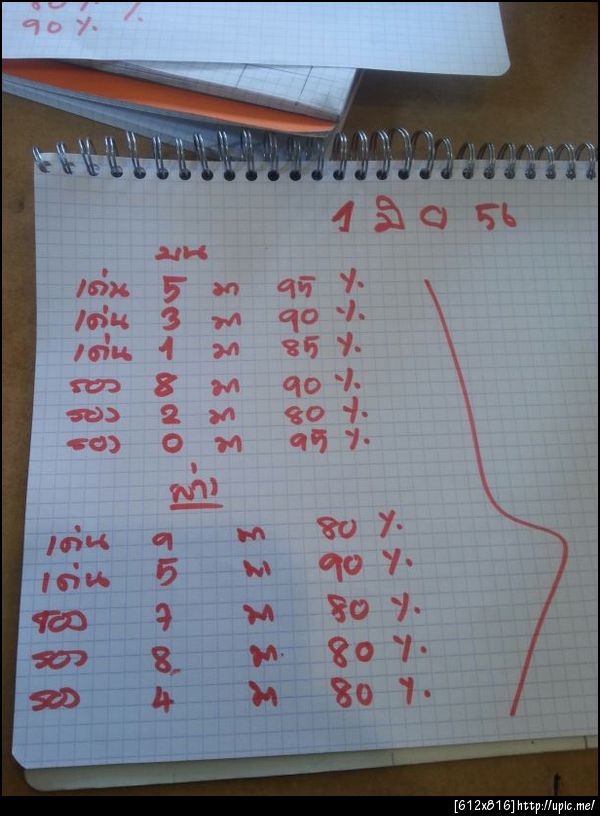 80 % %
90 %
1 มิ ย 56
บน
เด่น 5 มา 95 %
เด่น 3 มา 90 %
เด่น 1 มา 85 %
รอง 8 มา 90 %
รอง 2 มา 80 %
รอง 0 มา 95 %
ล่าง
เด่น 9 มา 80 %
เด่น 5 มา 90 %
รอง 7 มา 80 %
รอง 8 มา 80 %
รอง 4 มา 80 %
[612x816]http://upic.me/